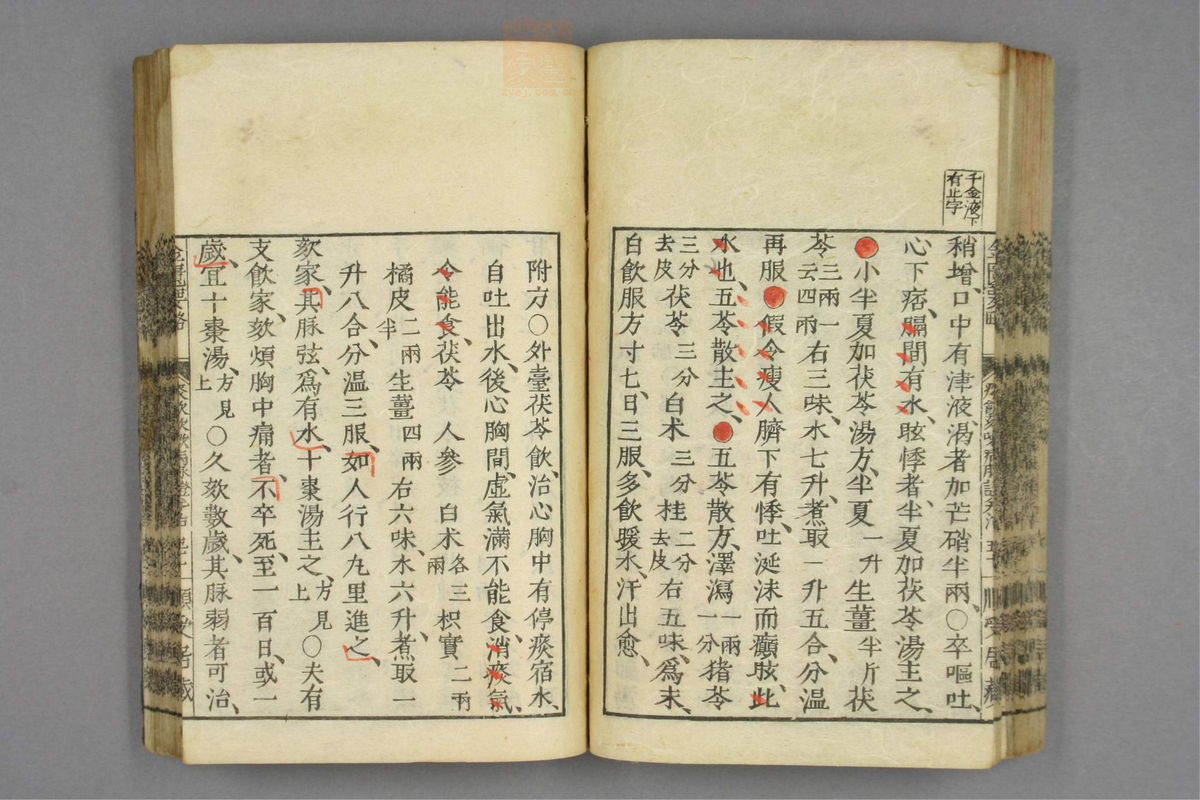 千金液下
有止字
稍增、口中有津液、渴者加芒硝半兩、○卒嘔吐、
心下痞、膈間有水、眩悸者、半夏加茯苓湯主之、
●小半夏加茯苓湯方、半夏一升生薑半斤茯
苓三兩一云四兩右三味、水七升、煮取一升五合、分溫
再服●假令瘦人臍下有悸、吐涎沫而癲眩、此
水也、五苓散主之、●五苓散方、澤瀉一兩一分猪苓
三分去皮茯苓三分白朮三分桂二分去皮右五味、爲末、
白飲服方寸七、日三服、多飲暖水、汗出愈、
附方○外臺茯苓飲、治心胸中有停痰宿水、
自吐出水、後心胸間、虛氣滿不能食、消痰氣、
令能食、茯苓 人參 白朮各三兩枳實二兩
橘皮二兩半生薑四兩右六味、水六升、煮取一
升八合、分溫三服、如人行八九里進之、
欬家、其脉弦、爲有水、十棗湯主之、方見上○夫有
支飲家、欬煩胸中痛者、不卒死、至一百日、或一
歲、宜十棗湯、方見上○久欬數歲、其脉弱者可治、
順受居藏